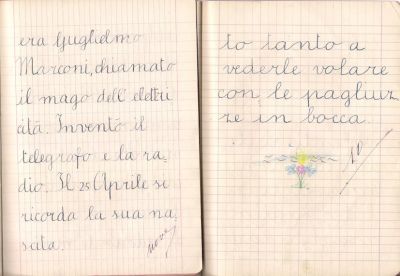 era Guglielmo
Marconi, chiamato
il mago dell'elettri
cità. Inventò il
telegrafo e la ra
dio. Il 25 Aprile si
ricorda la sua na
scita.
nove
to tanto a
vederle volare
con le pagliuz
ze in bocca.
10